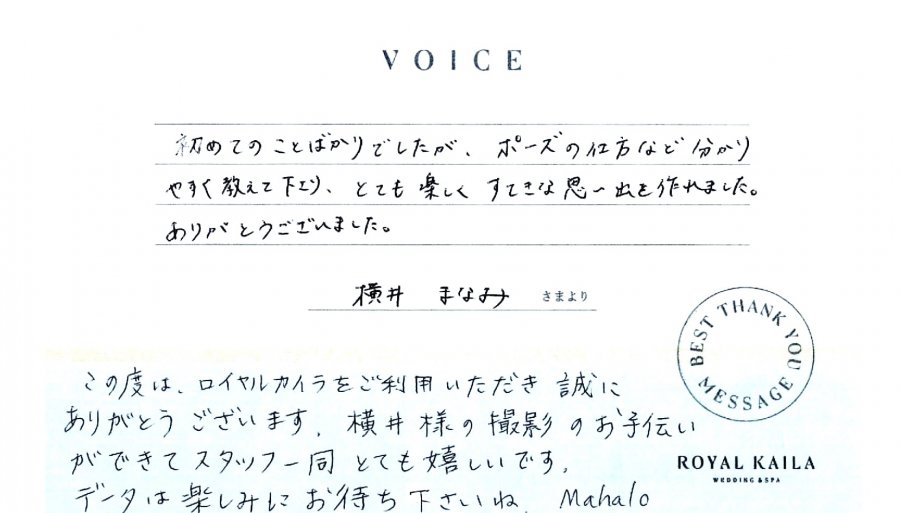 VOICE
初めてのことばかりでしたが、ポーズの仕方など分かり
やすく教えて下さり、とても楽しくすてきな思い出を作れました。
ありがとうございました。
横井 まなみ さまより
BEST THANK YOU MESSAGE
この度は、ロイヤルカイラをご利用いただき誠に
ありがとうございます。横井様の撮影のお手伝い
ができてスタッフ一同とても嬉しいです。
データは楽しみにお待ち下さいね。Mahalo
ROYAL KAILA
WEDDING & SPA